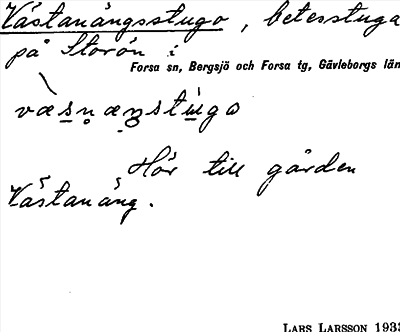 Västanängsstugo, betesstuga
på Storön i
Forsa sn, Bergsjö och Forsa tg, Gävleborgs län
Hör till gården
Västanäng.
LARS LARSSON 1933